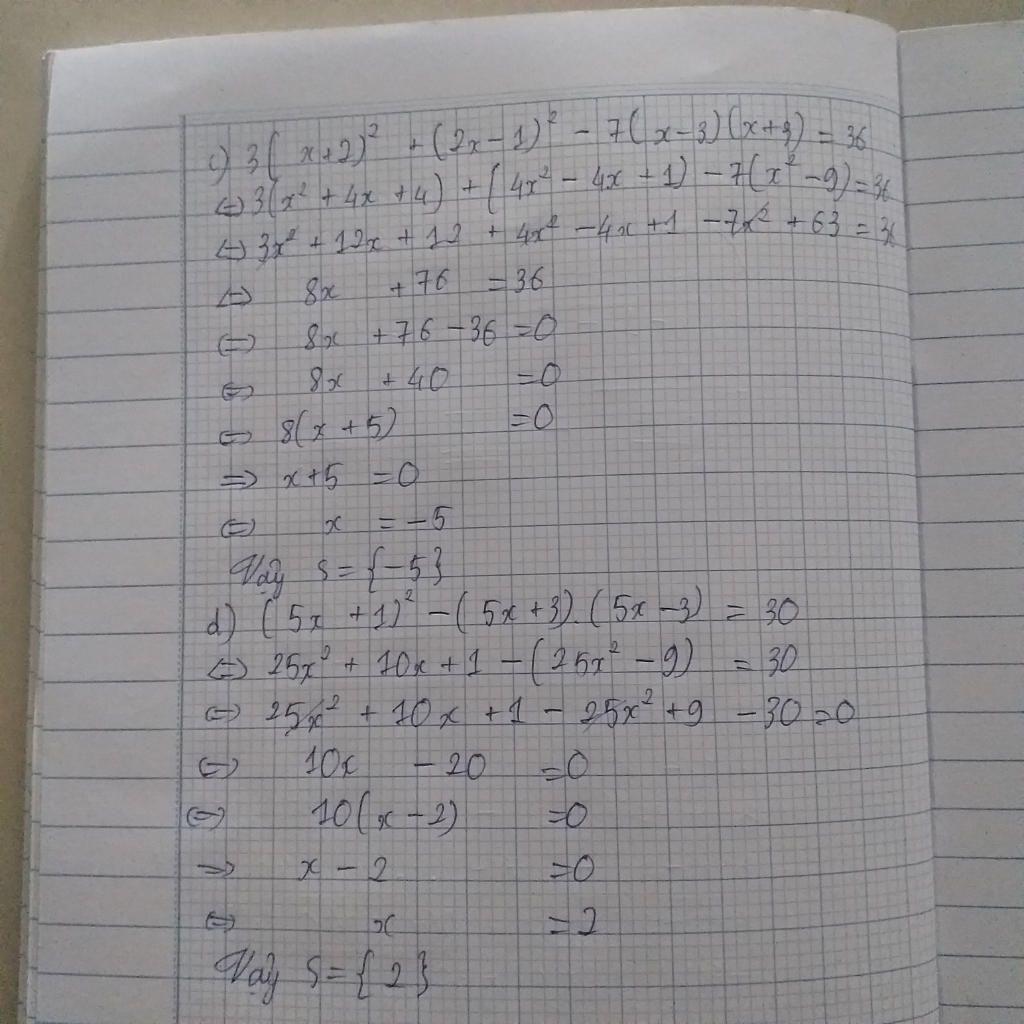 c) 3( x+2)² + (2x-1)² - 7( x-3)(x+3) = 36
⇔ 3(x² + 4x + 4) + (4x² - 4x + 1) - 7(x² - 9) = 36
⇔ 3x² + 12x + 12 + 4x² - 4x + 1 - 7x² + 63 = 36
⇔ 8x + 76 = 36
⇔ 8x + 76 - 36 = 0
⇔ 8x + 40 = 0
⇔ 8(x + 5) = 0
⇒ x+5 = 0
⇔ x = -5
Vậy S = {-5}
d) (5x + 1)² - (5x+3).(5x-3) = 30
⇔ 25x² + 10x + 1 - (25x² - 9) = 30
⇔ 25x² + 10x + 1 - 25x² + 9 - 30 = 0
⇔ 10x - 20 = 0
⇔ 10(x - 2) = 0
⇒ x - 2 = 0
⇔ x = 2
Vậy S = { 2 }